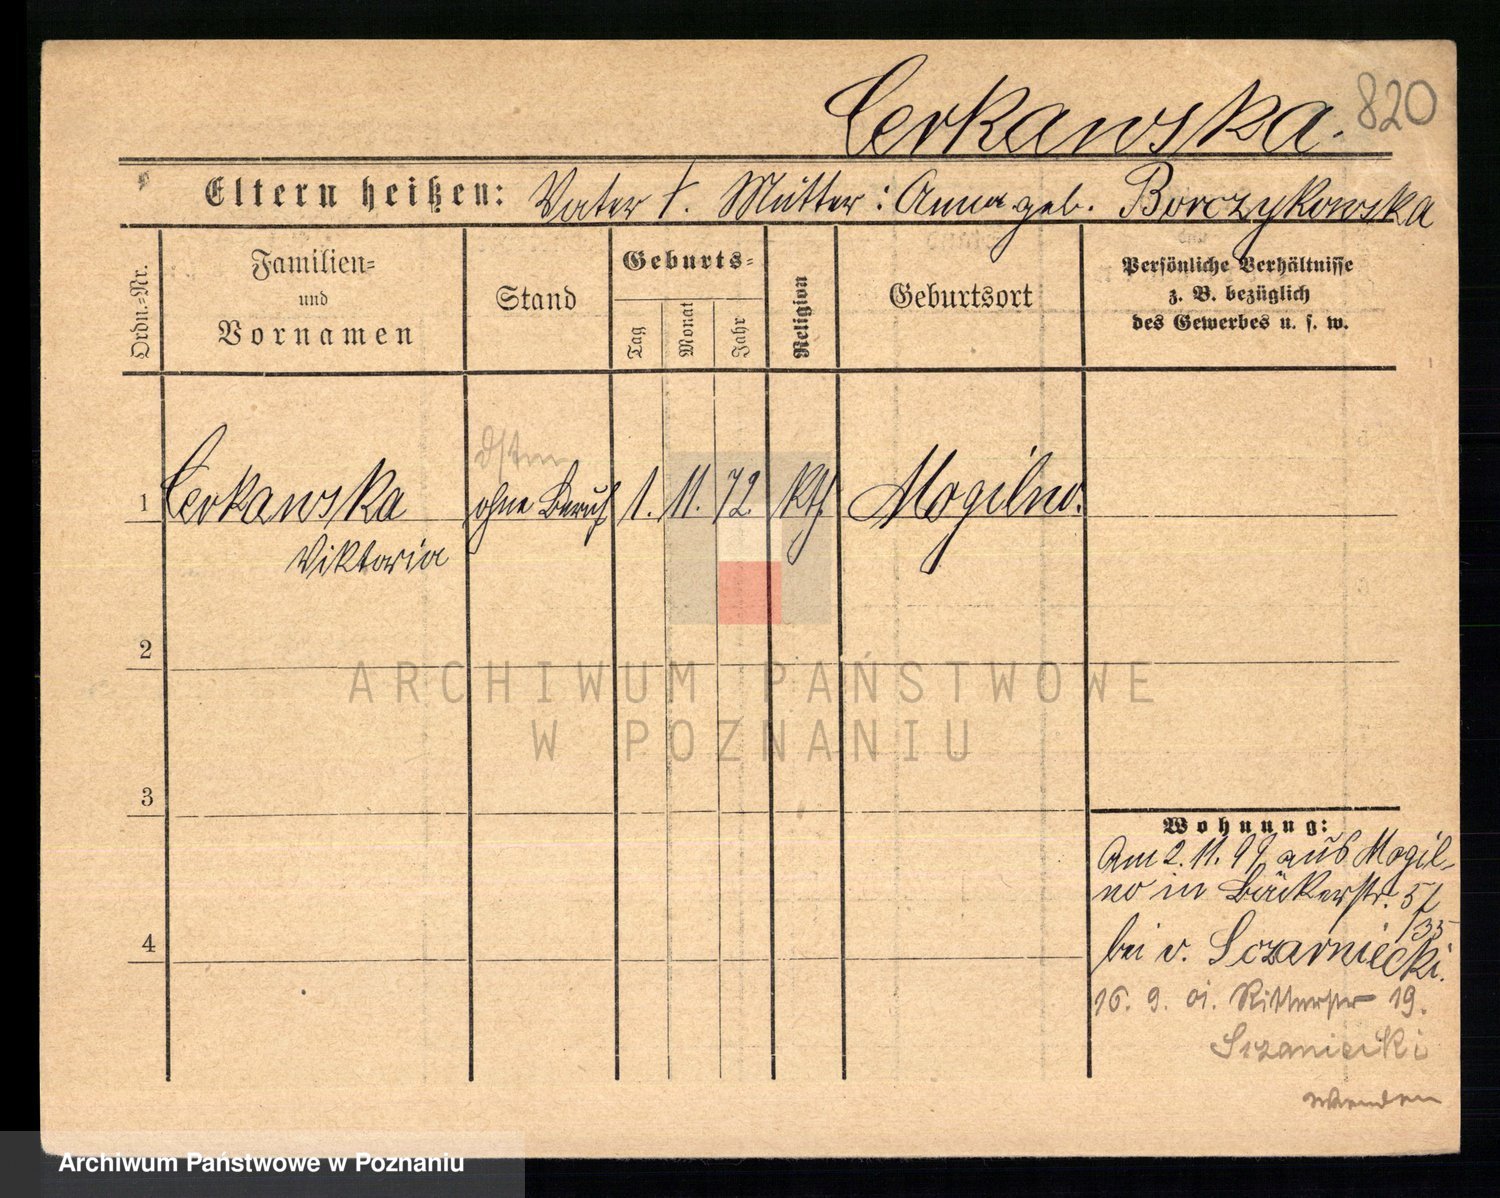 Cerkawska.
820
Eltern heißen: Vater †. Mutter: Anna geb. Borczykowska
Ordn.=Nr.
Familien=
und
Vornamen
Stand
Geburts=
Tag
Monat
Jahr
Religion
Geburtsort
Persönliche Verhältnisse
z. B. bezüglich
des Gewerbes u. s. w.
1 Cerkawska ohne Beruf 1. 11. 72. kth Mogilno.
Viktoria
2
3
4
Wohnung:
Am 2. 11. 99 aus Mogil-
no in Bäckerstr. 57
/35
bei v. Sczaniecki.
16. 9. 01. Ritterstr 19.
Sczaniecki
wenden
ARCHIWUM PAŃSTWOWE
W POZNANIU
Archiwum Państwowe w Poznaniu